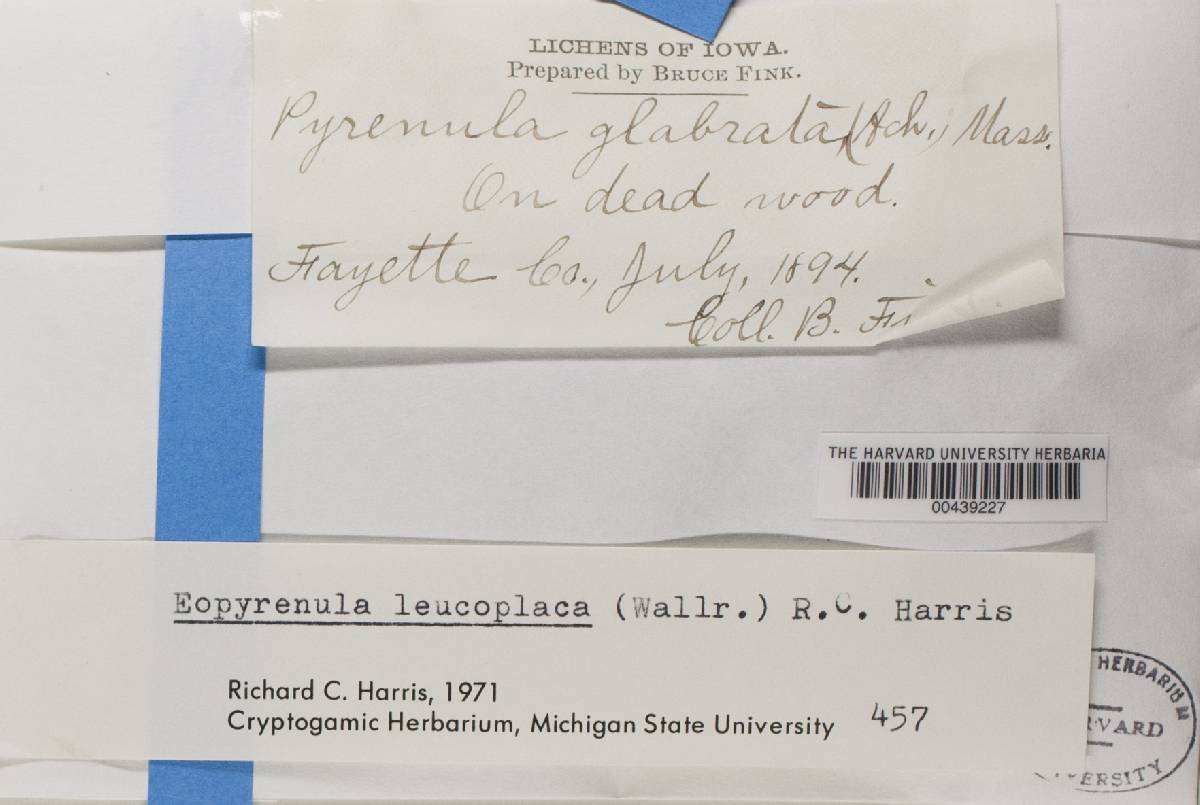 LICHENS OF IOWA.
Prepared by BRUCE FINK.
Pyrenula glabrata, (Ach.) Mass.
On dead wood.
Fayette Co., July, 1894.
Coll. B.
THE HARVARD UNIVERSITY HERBARIA
00439227
Eopyrenula leucoplaca (Wallr.) R.C. Harris
Richard C. Harris, 1971
Cryptogamic Herbarium, Michigan State University 457
HERBARIUM